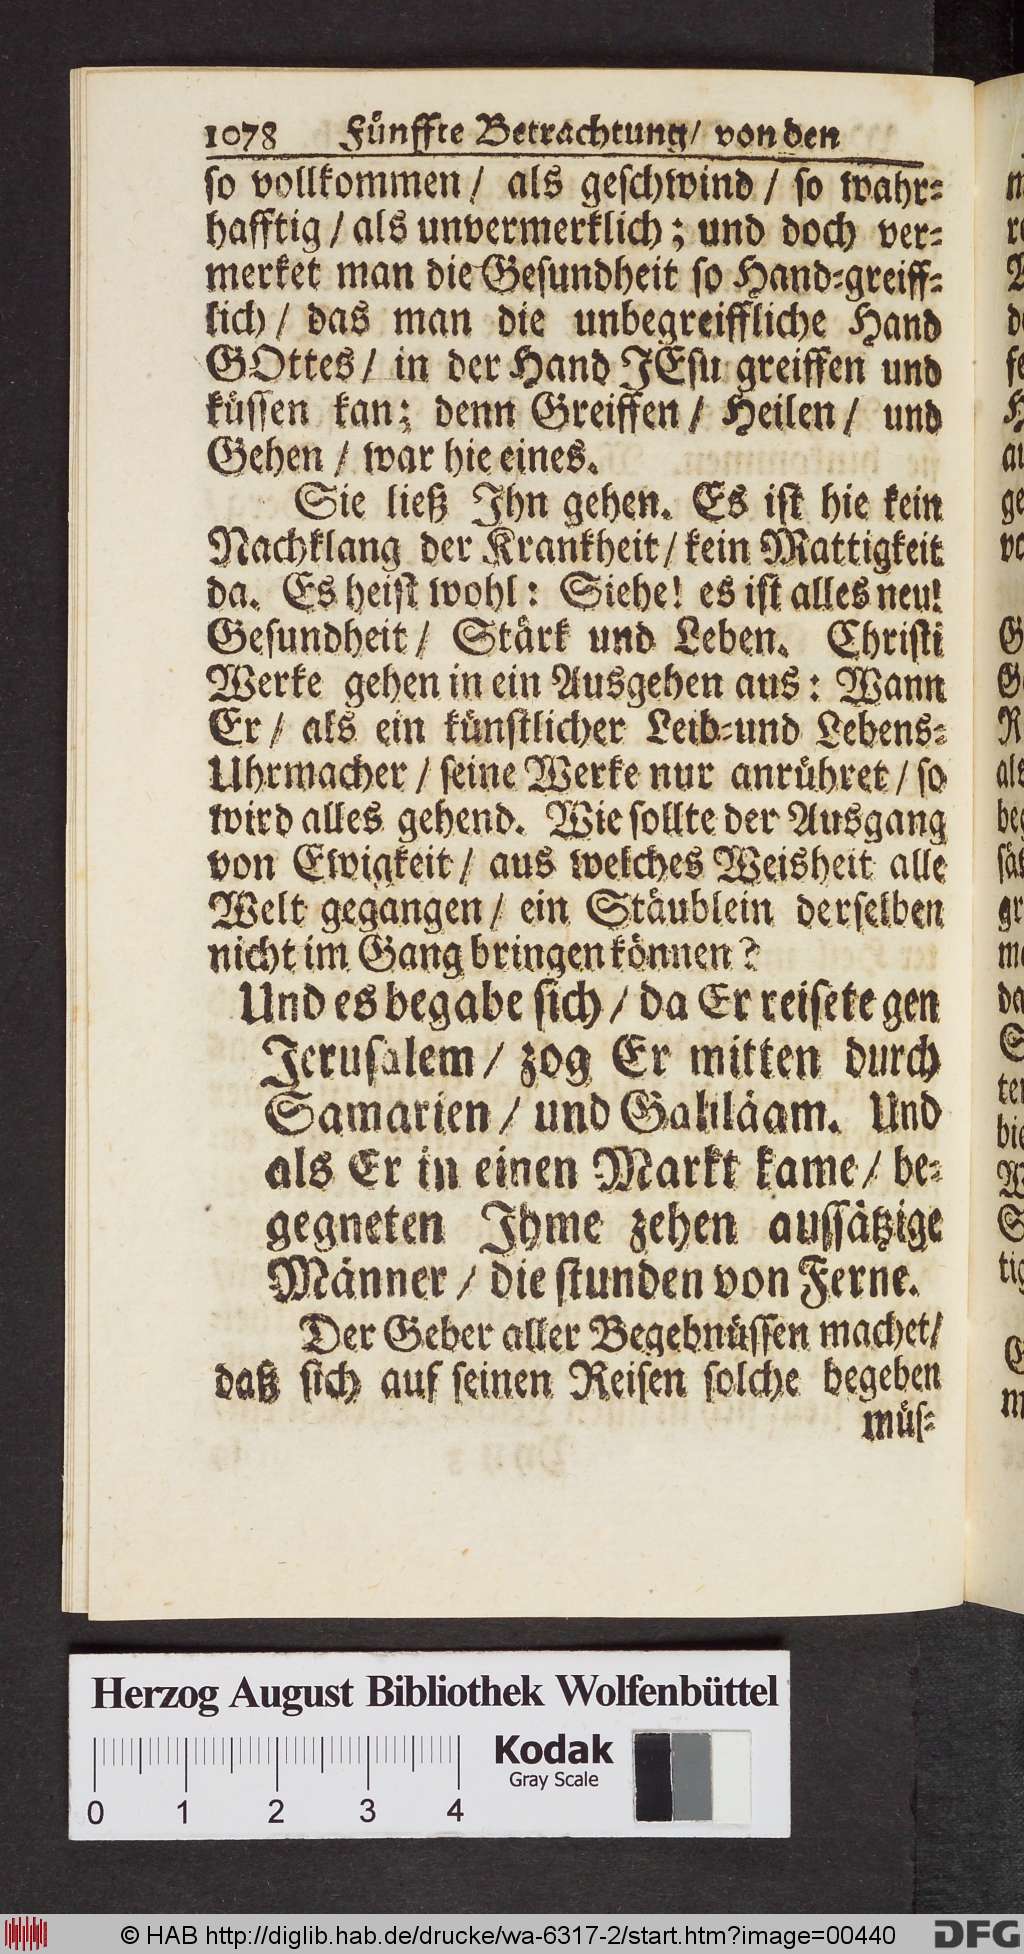 1078 Fünffte Betrachtung/ von den
so vollkommen / als geschwind / so wahr-
hafftig / als unvermerklich; und doch ver-
merket man die Gesundheit so Hand-greiff-
lich / das man die unbegreiffliche Hand
GOttes / in der Hand JEsu greiffen und
küssen kan; denn Greiffen / Heilen / und
Gehen / war hie eines.
Sie ließ Ihn gehen. Es ist hie kein
Nachklang der Krankheit / kein Mattigkeit
da. Es heist wohl: Siehe! es ist alles neu!
Gesundheit / Stärk und Leben. Christi
Werke gehen in ein Ausgehen aus: Wann
Er / als ein künstlicher Leib-und Lebens-
Uhrmacher / seine Werke nur anrühret / so
wird alles gehend. Wie sollte der Ausgang
von Ewigkeit / aus welches Weisheit alle
Welt gegangen / ein Stäublein derselben
nicht im Gang bringen können?
Und es begabe sich / da Er reisete gen
Jerusalem / zog Er mitten durch
Samarien / und Galiläam. Und
als Er in einen Markt kame / be-
gegneten Ihme zehen aussätzige
Männer / die stunden von Ferne.
Der Geber aller Begebnüssen machet/
daß sich auf seinen Reisen solche begeben
müs-
Herzog August Bibliothek Wolfenbüttel
Kodak
Gray Scale
0 1 2 3 4
© HAB http://diglib.hab.de/drucke/wa-6317-2/start.htm?image=00440
DFG